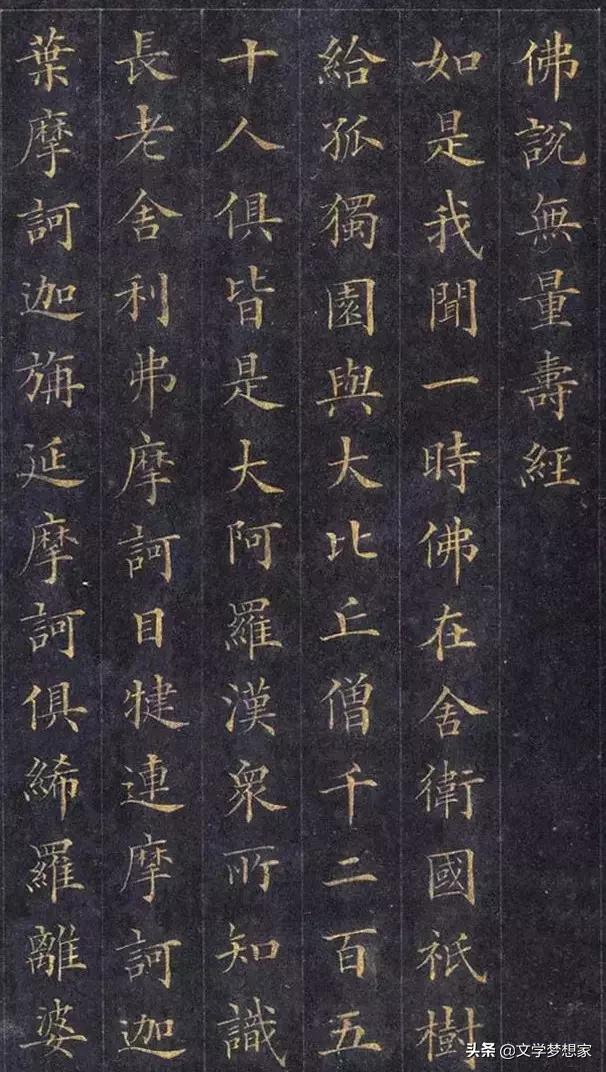 佛說無量壽經
如是我聞一時佛在舍衛國祇樹
給孤獨園與大比丘僧千二百五
十人俱皆是大阿羅漢眾所知識
長老舍利弗摩訶目犍連摩訶迦
葉摩訶迦旃延摩訶俱絺羅離婆
头条 @文学梦想家